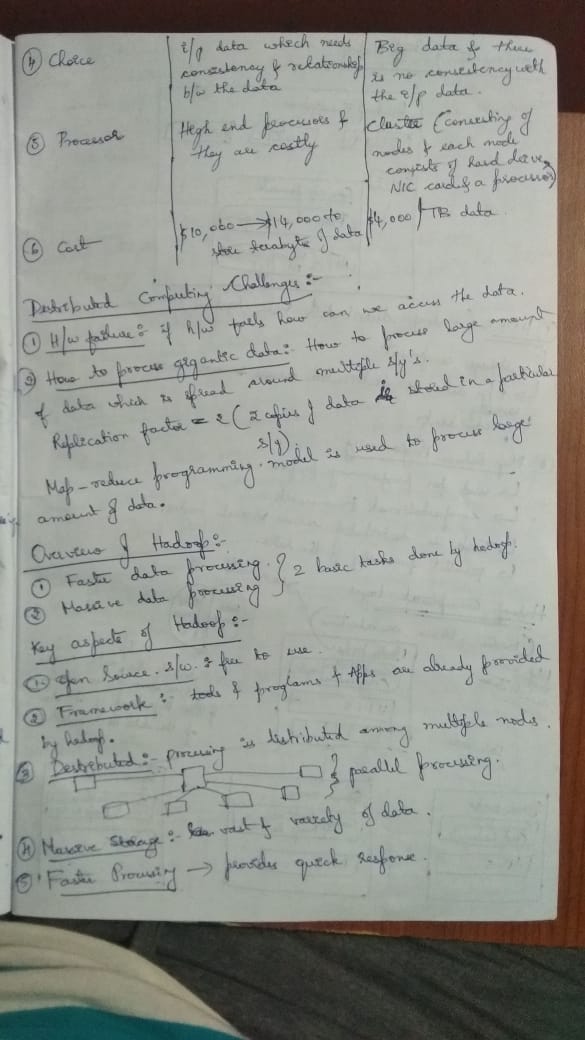 ④ Choice
i/p data which needs
consistency & relationship
b/w the data
Big data & there
is no consistency with
the i/p data.
⑤ Processor
High end processors &
they are costly
Cluster (consisting of
nodes & each node
consists of hard drive,
NIC card & a processor)
⑥ Cost
$10,000 → $14,000 to
store terabyte of data
$4,000 / TB data
Distributed Computing Challenges :-
① H/w failure : if h/w fails how can we access the data.
② How to process gigantic data : How to process large amount
of data which is spread around multiple s/y's.
Replication factor = 2 (2 copies of data is stored in a particular
s/y)
Map-reduce programming model is used to process large
amount of data.
Overview of Hadoop :-
① Faster data processing
② Massive data processing } 2 basic tasks done by hadoop.
Key aspects of Hadoop :-
① Open Source s/w : free to use.
② Framework :- tools & programs & Apps are already provided
by hadoop.
③ Distributed :- processing is distributed among multiple nodes.
} parallel processing.
④ Massive Storage :- vast & variety of data.
⑤ Faster Processing → provides quick response.